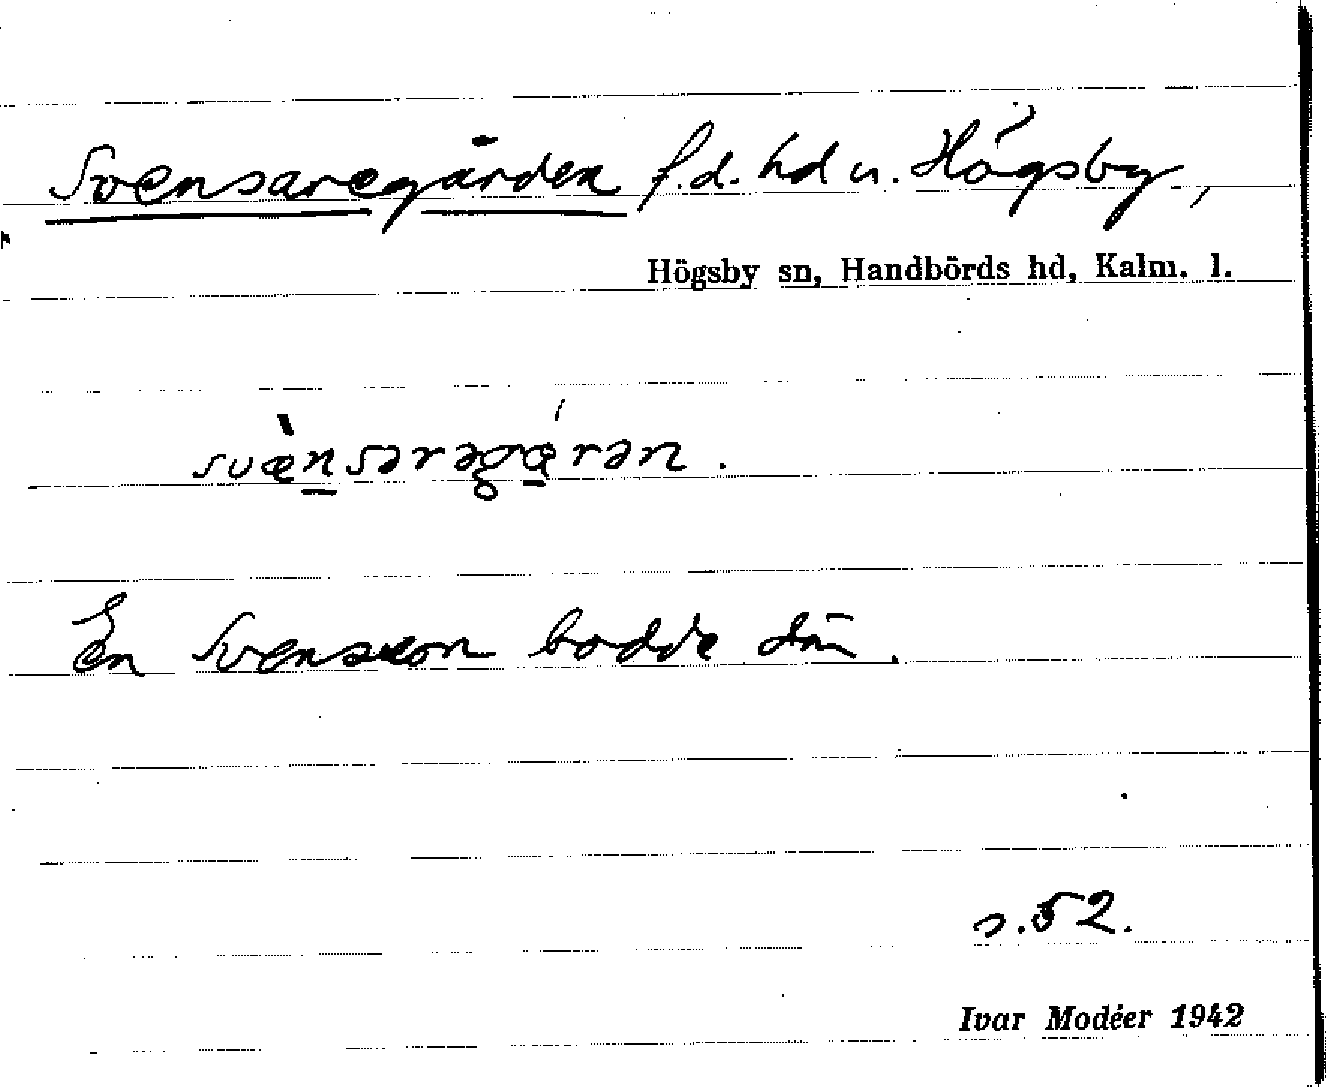 Svensaregården f.d. hd u. Högsby,
Högsby sn, Handbörds hd, Kalm. l.
svæ̀n̠sərəgɑ̠́rən.
En Svensson bodde där.
s. 52.
Ivar Modéer 1942